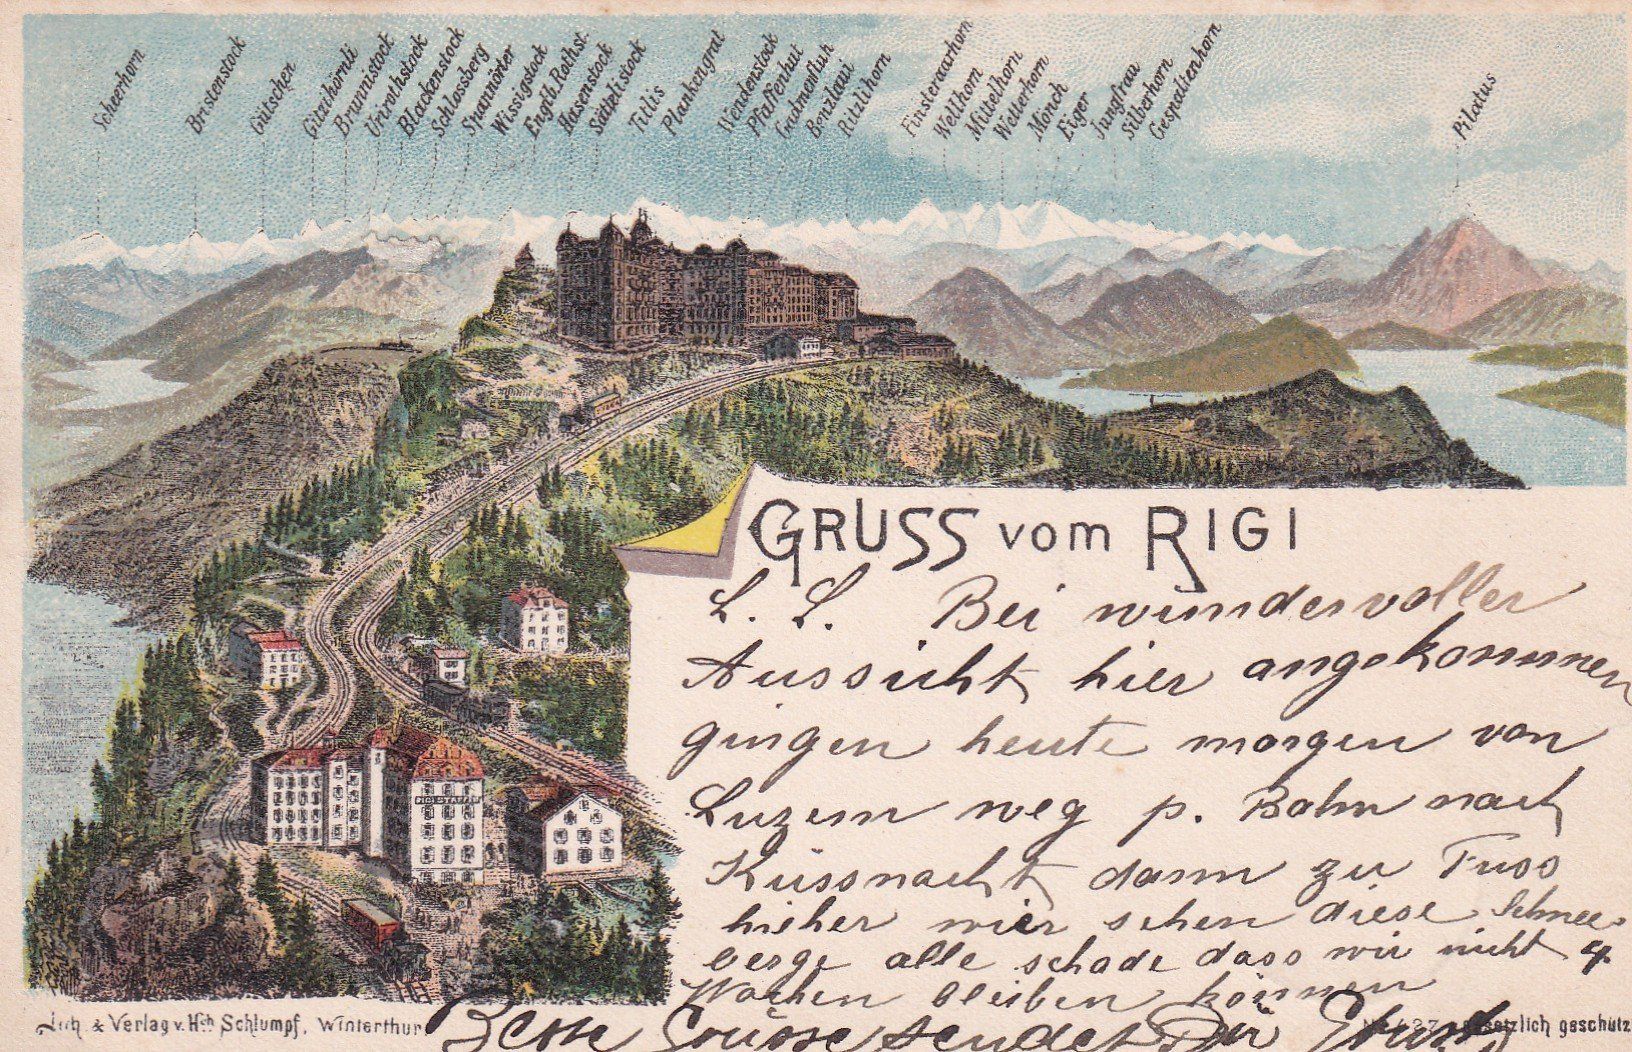 Scheerhorn
Bristenstock
Gütschen
Gitzihörnli
Brunnistock
Urirothstock
Blackenstock
Schlossberg
Spannörter
Wissigstock
Englb. Rothst.
Hasenstock
Sättelistock
Titlis
Plankengrat
Wendenstock
Pfaffenhut
Gadmenfluh
Benzlaui
Ritzlihorn
Finsteraarhorn
Wellhorn
Mittelhorn
Wetterhorn
Mönch
Eiger
Jungfrau
Silberhorn
Gespaltenhorn
Pilatus
GRUSS vom RIGI
L. L. Bei wundervoller
Aussicht hier angekommen
gingen heute morgen von
Luzern weg p. Bahn nach
Küssnacht dann zu Fuss
hieher wir sehen diese Schnee-
berge alle schade dass wir nicht 4
Wochen bleiben können
Beste Grüsse sendet Dir
RIGI STAFFEL
Lith. & Verlag v. Hch. Schlumpf, Winterthur
gesetzlich geschützt